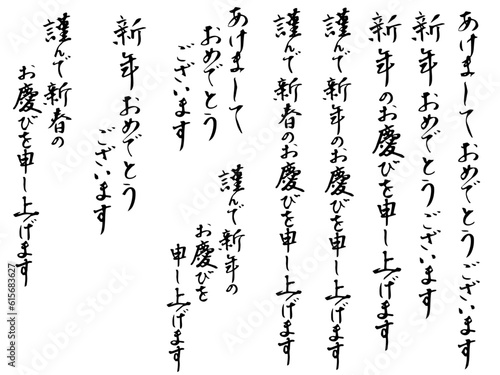 あけましておめでとうございます
新年おめでとうございます
新年のお慶びを申し上げます
謹んで新年のお慶びを申し上げます
謹んで新春のお慶びを申し上げます
あけまして
おめでとう
ございます
謹んで新年の
お慶びを
申し上げます
新年おめでとう
ございます
謹んで新春の
お慶びを申し上げます
Adobe Stock | #615683627
Adobe Stock